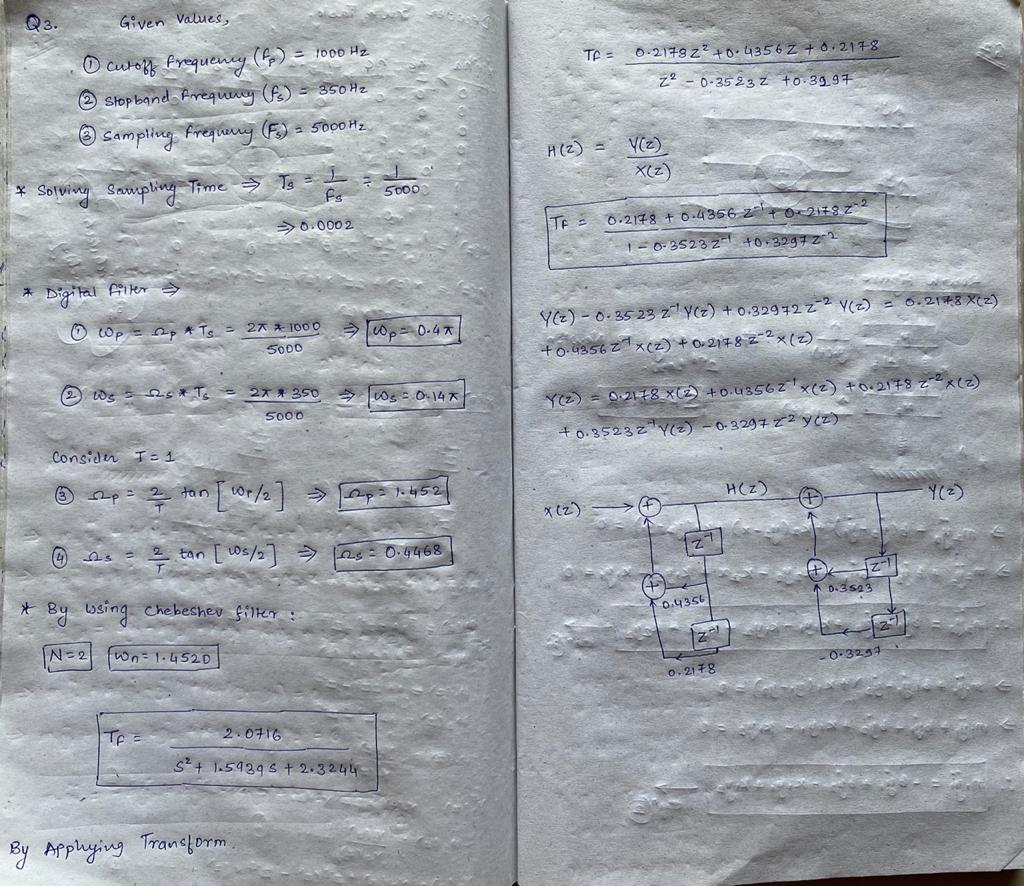 Q3. Given Values,
① cutoff frequency (fp) = 1000 Hz
② stopband frequency (fs) = 350 Hz
③ Sampling frequency (Fs) = 5000 Hz
* Solving Sampling Time ⇒ Ts = 1/fs = 1/5000
⇒ 0.0002
* Digital filter ⇒
① ωp = Ωp * Ts = 2π * 1000 / 5000 ⇒ ωp = 0.4π
② ωs = Ωs * Ts = 2π * 350 / 5000 ⇒ ωs = 0.14π
Consider T = 1
③ Ωp = 2/T tan [ωp/2] ⇒ Ωp = 1.452
④ Ωs = 2/T tan [ωs/2] ⇒ Ωs = 0.4468
* By using chebeshev filter :
N=2 ωn = 1.4520
TF = 2.0716 / S² + 1.5939 S + 2.3244
By Applying Transform.
TF = 0.2178 z² + 0.4356 z + 0.2178 / z² - 0.3523 z + 0.3997
H(z) = Y(z) / X(z)
TF = 0.2178 + 0.4356 z⁻¹ + 0.2178 z⁻² / 1 - 0.3523 z⁻¹ + 0.3297 z⁻²
Y(z) - 0.3523 z⁻¹ Y(z) + 0.32972 z⁻² Y(z) = 0.2178 X(z)
+ 0.4356 z⁻¹ X(z) + 0.2178 z⁻² X(z)
Y(z) = 0.2178 X(z) + 0.4356 z⁻¹ X(z) + 0.2178 z⁻² X(z)
+ 0.3523 z⁻¹ Y(z) - 0.3297 z⁻² Y(z)
X(z) + H(z) + Y(z)
z⁻¹
+ z⁻¹
+ 0.4356 0.3523
z⁻¹ z⁻¹
0.2178 -0.3297